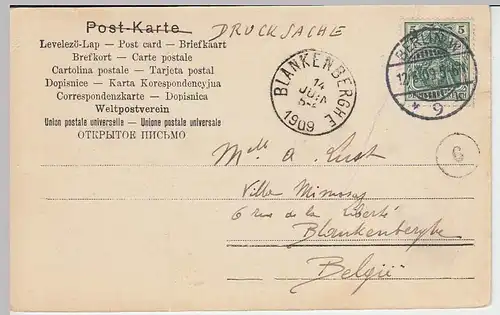 Post-Karte DRUCKSACHE
Levelezö-Lap — Post card — Briefkaart
Brefkort — Carte postale
Cartolina postale — Tarjeta postal
Dopisnice — Karta Korespondencyjua
Correspondenzkarte — Dopisnica
Weltpostverein
Union postale universelle — Unione postale universale
ОТКРЫТОЕ ПИСЬМО
BLANKENBERGHE
14
JUIN
1909
5 5
BERLIN W
* 9
G
Melle A. Lust
Villa Mimosas
6 rue de la Liberté
Blankenberghe
België